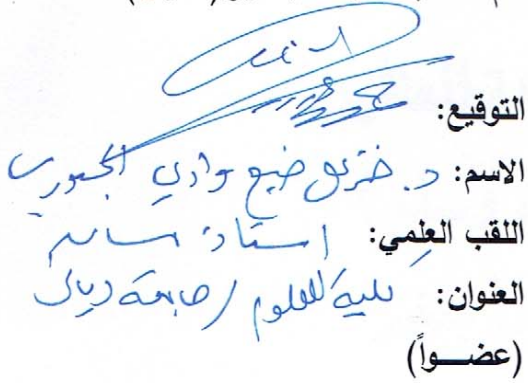 التوقيع:
الاسم: د. ضبع وادي الجبوري
اللقب العلمي: استاذ مساعد
العنوان: كلية العلوم / جامعة ديالى
(عضـــواً)